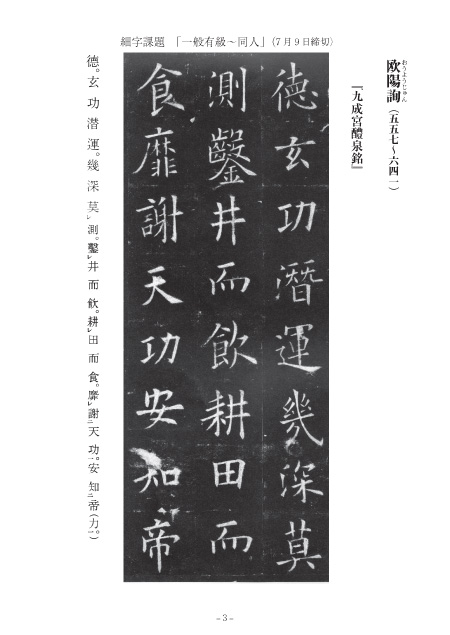 細字課題 「一般有級～同人」(7月9日締切)
欧陽詢(五五七～六四一)
おうようじゅん
『九成宮醴泉銘』
德玄功潛運幾深莫
測鑿井而飲耕田而
食靡謝天功安知帝
德。玄功潜運。幾深莫レ測。鑿レ井而飲。耕レ田而食。靡レ謝二天功一。安知二帝(力一。)
－3－